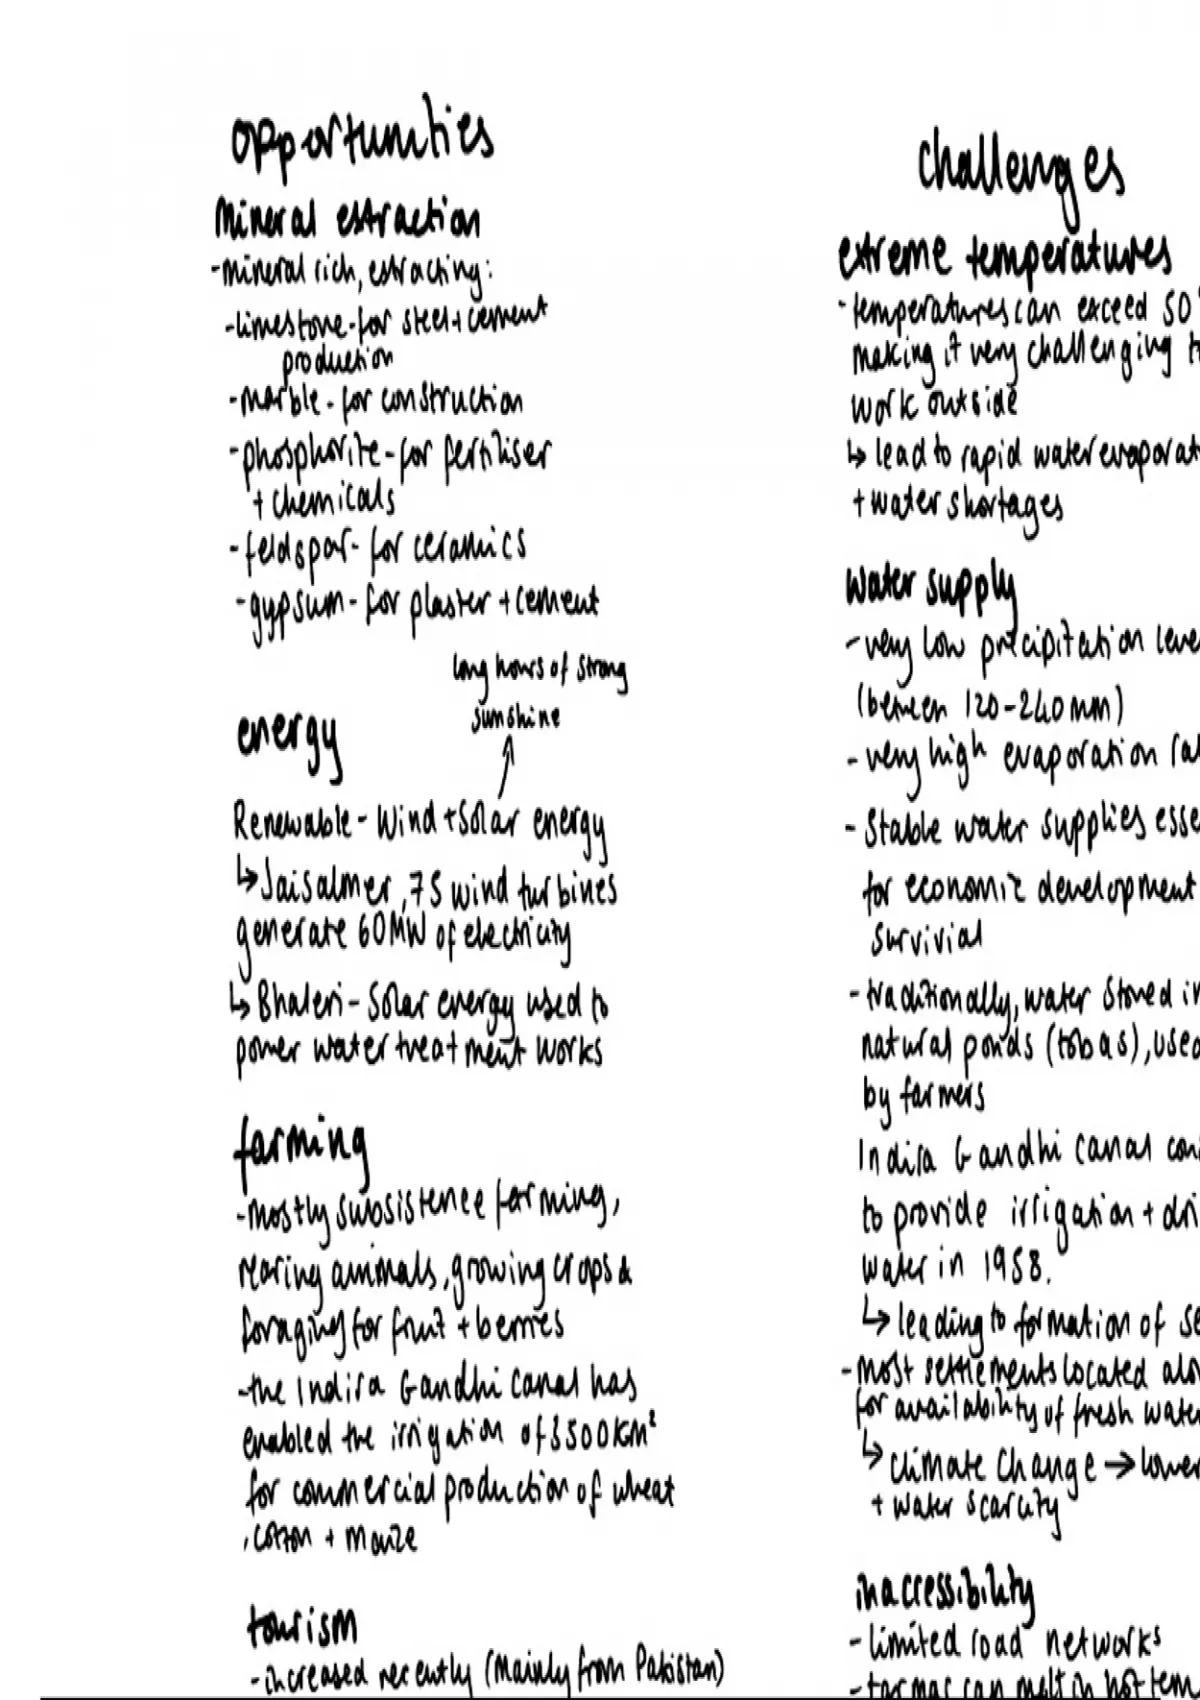 opportunities
Mineral estraction
-mineral rich, estracting:
-limestone-for steel+cement
production
-marble-for construction
-phosphorite-for fertiliser
+ chemicals
-feldspar-for ceramics
-gypsum-for plaster + cement
long hours of strong
sunshine
energy
Renewable - Wind + Solar energy
↳Jaisalmer, 75 wind turbines
generate 60MW of electricity
↳Bhaleri - Solar energy used to
power water treatment works
farming
-mostly subsistence farming,
rearing animals, growing crops &
foraging for fruit + berries
-the Indira Gandhi canal has
enabled the irrigation of 3500km²
for commercial production of wheat
, cotton + maize
tourism
-increased recently (Mainly from Pakistan)
challenges
extreme temperatures
-temperatures can exceed 50°
making it very challenging t
work outside
↳ lead to rapid water evaporat
+ water shortages
water supply
-very low precipitation leve
(between 120-240mm)
-very high evaporation ra
-Stable water supplies esse
for economic development
survivial
-traditionally, water stored in
natural ponds (tobas), used
by farmers
Indira Gandhi canal con
to provide irrigation + dri
water in 1958.
↳ leading to formation of se
-most settlements located alo
for availability of fresh water
↳ climate change → lower
+ water scarcity
inaccessibility
-limited road networks
-tarmac can melt in hot tem